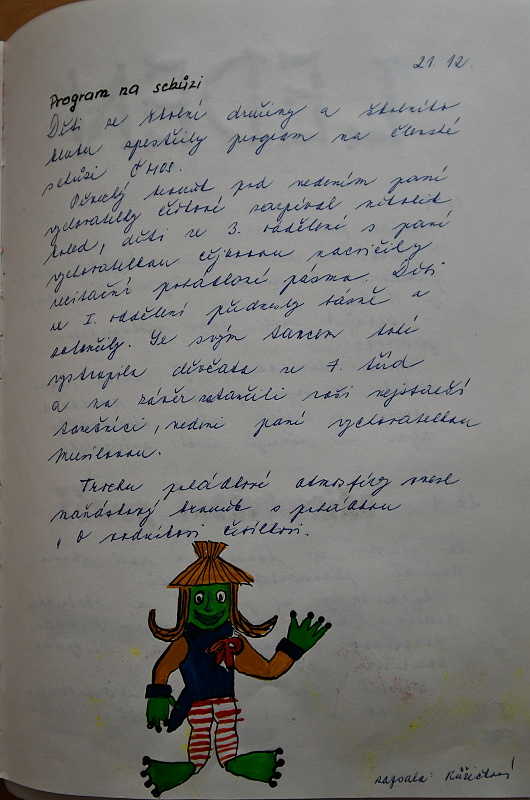 21. 12.
Program na schůzi
Děti ze školní družiny a školního
klubu zpestřily program na členské
schůzi ČMOS.
Pěvecký kroužek pod vedením paní
vychovatelky zazpíval několik
koled, děti ze 3. oddělení s paní
vychovatelkou nacvičily
recitační pohádkové pásmo. Děti
ze I. oddělení přednesly básně a
zatančily. Se svým tancem také
vystoupila děvčata ze 7. tříd
a na závěr zatančili naši nejstarší
tanečníci, vedeni paní vychovatelkou
Musilovou.
Trochu pohádkové atmosféry vnesl
maňáskový kroužek s pohádkou
"O vodníkovi
zapsala: Růžičková